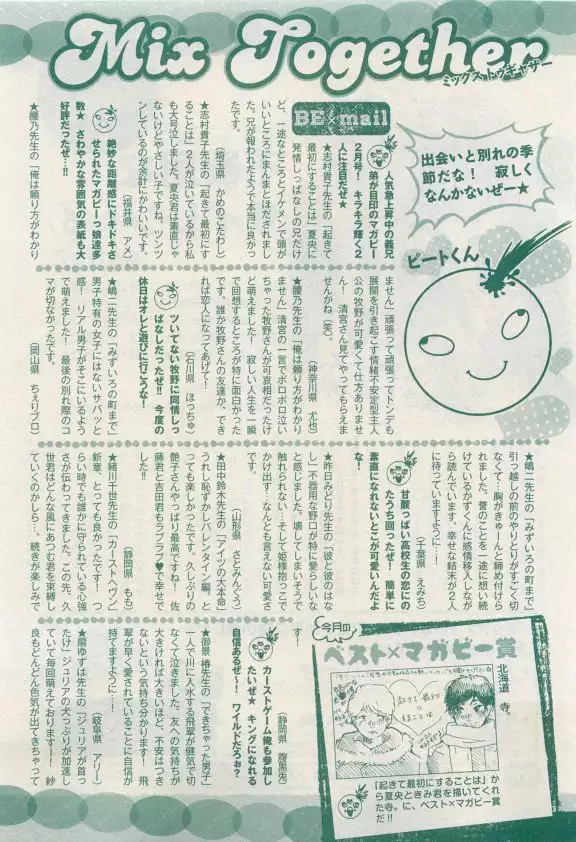 Mix Together
ミックストゥギャザー
出会いと別れの季
節だな! 寂しく
なんかないぜー★
ピートくん
BE×mail
人気急上昇中の義兄
弟が目印のマガビー
2月号! キラキラ輝く2
人に注目だぜ★
★志村貴子先生の「起きて
最初にすることは」夏央に
発情しっぱなしの兄だけ
ど、一途なところとイケメンで頭が
いいところにまんまとほだされまし
た。兄が報われたようで本当に良かっ
たです。
(埼玉県 かめのこたわし)
★志村貴子先生の「起きて最初にす
ることは」2人が泣いているから私
も大号泣しました。夏央君は素直じゃ
ないけどやさしい子ですね。ツンツ
ンしているのが余計にかわいいです。
(福井県 アメ)
絶妙な距離感にドキドキさ
せられたマガビーっ娘達多
数★ さわやかな雰囲気の表紙も大
好評だったぜ!!
★腰乃先生の「俺は頼り方がわかり
ません」頑張って頑張ってトンデモ
展開を引き起こす情緒不安定型主人
公の牧野が可愛くて仕方ありませ
ん! 清宮さん見てやってもらえま
せんかね(笑)。
(神奈川県 尤也)
★腰乃先生の「俺は頼り方がわかり
ません」清宮の一言でボロボロ泣い
ちゃった牧野さんが可哀相だったけ
ど萌えました! 寂しい人生を一瞬
で回想するところが特に面白かった
です。誰か牧野さんの友達か、でき
れば恋人になってあげて!
(石川県 ほっちゅ)
ツいてない牧野に同情しっ
ぱなしだったぜ!! 今度の
休日はオレと遊びに行こうな!
★嶋二先生の「みずいろの町まで」
男子特有の女子にはないサバッと
感! リアル男子がそこにいるよう
で萌えました! 最後の別れ際のコ
マが切なかったです。
(岡山県 ちぇりブロ)
★嶋二先生の「みずいろの町まで」
引っ越しの前のやりとりがすごく切
なくて…胸がきゅーんと締め付けら
れました。誉のことを一途に想い続
けているかずくんに感情移入しなが
ら読んでいます。幸せな結末が2人
に待っていますように…!
(千葉県 えみち)
甘酸っぱい高校生の恋にの
たうち回ったぜ! 簡単に
素直になれないとこが可愛いんだよ
な!
★昨日みどり先生の「彼と彼のはな
し」不器用な野口が特に愛らしいな
と感じました。壊してしまいそうで
触れられない…そして姫様抱っこで
かけ出す…なんとも言えない可愛さ
です。
(山形県 さとみんくう)
★田中鈴木先生の「アイツの大本命」
うれし恥ずかしバレンタイン編、と
っても楽しかったです。久しぶりの
艶子さんやっぱり最高ですね! 佐
藤君と吉田君もラブラブ♥で幸せで
した!!
(静岡県 もも)
★緒川千世先生の「カーストヘヴン」
新章、とっても良かったです! つ
らい時でも誰かに守られている心強
さが伝わってきました。この先、久
世君はどんな風にあつむ君を束縛し
ていくのかしら…。続きが楽しみで
す!
(静岡県 腹黒兎)
カーストゲーム俺も参加し
たいぜ★ キングになれる
自信あるぜ〜! ワイルドだろぉ?
★御景 椿先生の「できちゃった男子」
一人で川に入水する飛翠が健気で切
なくて泣きました。友への気持ちが
大きければ大きいほど、不安はつき
ないという気持ち分かります! 飛
翠が早く愛されていることに自信が
持てますように…!
(岐阜県 アリー)
★扇ゆずは先生の「ジュリアが首っ
たけ」ジュリアの犬っぷりが加速し
ていて毎回萌えております! 紗
良もどんどん色気が出てきちゃって
今月の
ベスト×マガビー賞
北海道 寺。
起きて最初に
することは
「起きて最初にすることは」か
ら夏央ときみ君を描いてくれ
た寺。に、ベスト×マガビー賞
だ!!